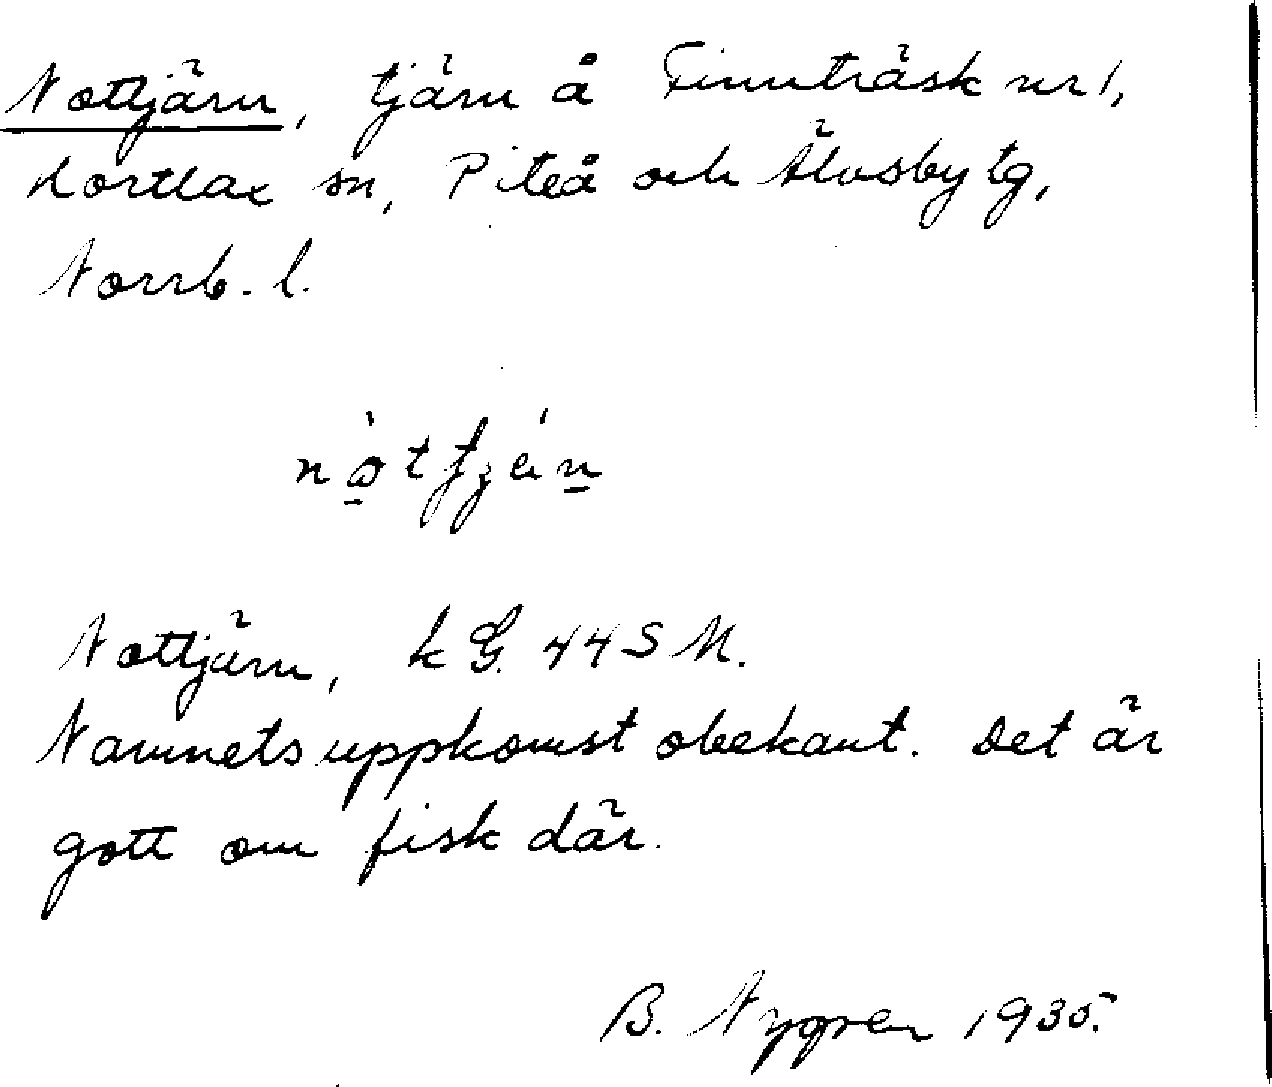 Nottjärn, tjärn å Finnträsk nr 1,
Hortlax sn, Piteå och Älvsby tg,
Norrb. l.
Nottjärn, k G. 44 S M.
Namnets uppkomst obekant. Det är
gott om fisk där.
B. Nygren 1935.